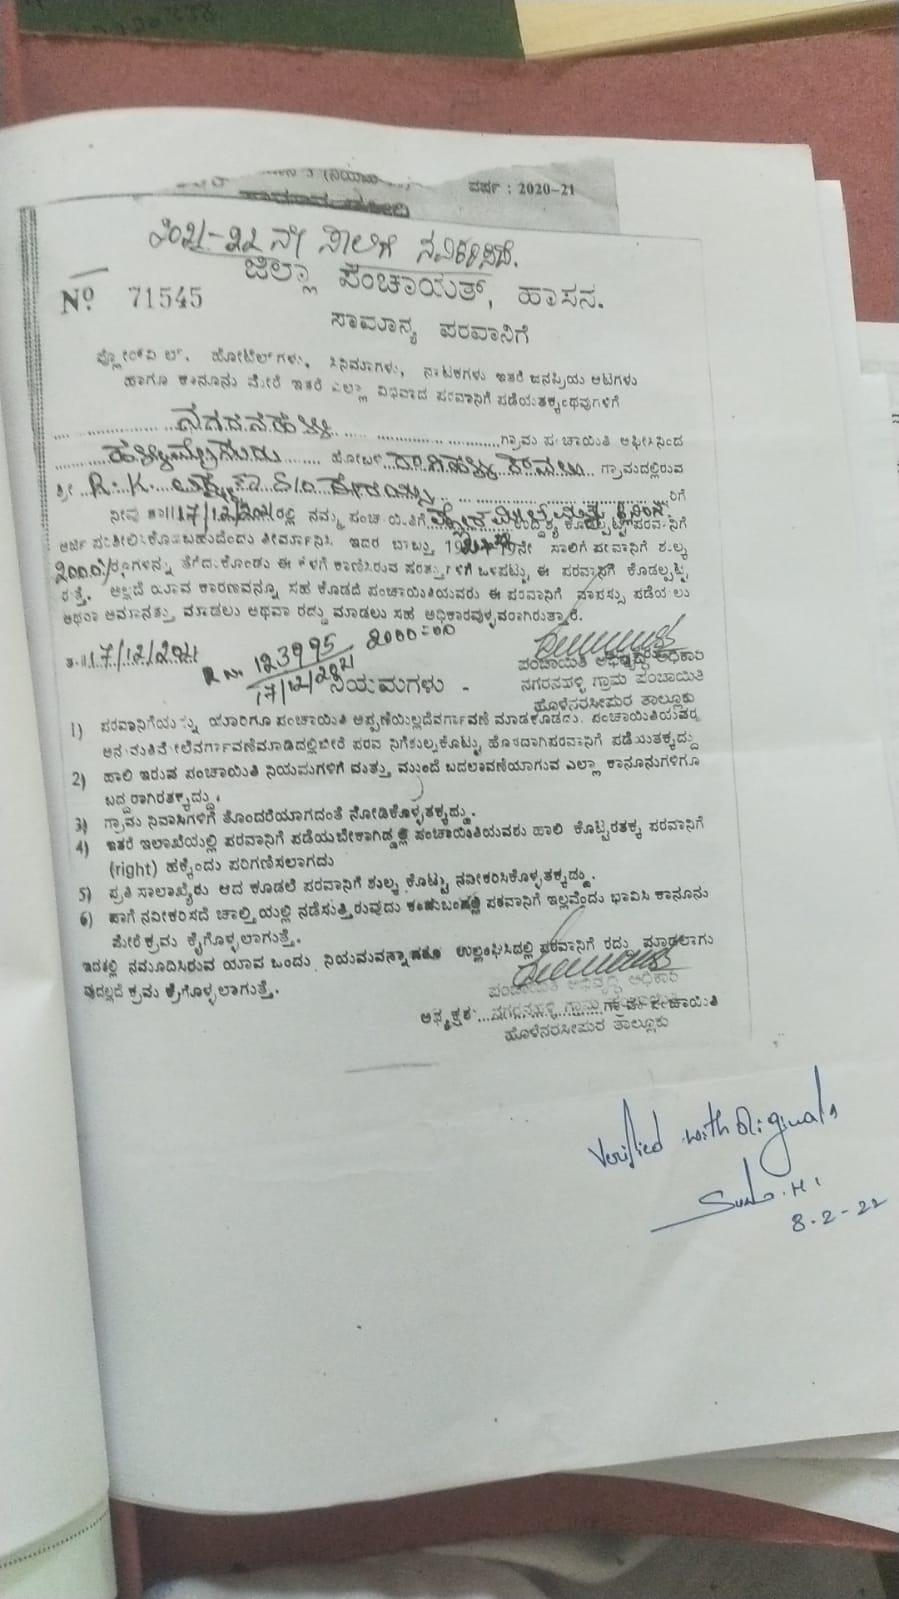 ವರ್ಷ : 2020-21
2021-22 ನೇ ಸಾಲಿಗೆ ನವೀಕರಿಸಿದೆ.
ಜಿಲ್ಲಾ ಪಂಚಾಯತ್, ಹಾಸನ.
No 71545
ಸಾಮಾನ್ಯ ಪರವಾನಿಗೆ
ಹೋಟೆಲ್‌ಗಳು, ಸಿನಿಮಾಗಳು, ನಾಟಕಗಳು ಇತರೆ ಜನಪ್ರಿಯ ಆಟಗಳು
ಹಾಗೂ ಕಾನೂನು ಮೇರೆ ಇತರೆ ಎಲ್ಲಾ ವಿಧವಾದ ಪರವಾನಿಗೆ ಪಡೆಯತಕ್ಕಂಥವುಗಳಿಗೆ
ಗ್ರಾಮ ಪಂಚಾಯಿತಿ ಆಫೀಸಿನಿಂದ
ಹೋಬಳಿ ಗ್ರಾಮದಲ್ಲಿರುವ
ಶ್ರೀ R. K. ರಿಗೆ
ನೀವು ತಾ||17/12/2021ರಲ್ಲಿ ನಮ್ಮ ಪಂಚಾಯಿತಿಗೆ ಉದ್ದಿಶ್ಯ ಕೊಡಲ್ಪಟ್ಟ ಪರವಾನಿಗೆ
ಅರ್ಜಿ ತೀರ್ಮಾನಿಸಿ ಇದರ ಬಾಬ್ತು ಸಾಲಿಗೆ ಪರವಾನಿಗೆ ಶುಲ್ಕ
2000/ ರೂಗಳನ್ನು ತೆಗೆದುಕೊಂಡು ಈ ಕೆಳಗೆ ಕಾಣಿಸಿರುವ ಷರತ್ತುಗಳಿಗೆ ಒಳಪಟ್ಟು ಈ ಪರವಾನಿಗೆ ಕೊಡಲ್ಪಟ್ಟಿ
ರುತ್ತೆ. ಅಲ್ಲದೆ ಯಾವ ಕಾರಣವನ್ನೂ ಸಹ ಕೊಡದೆ ಪಂಚಾಯಿತಿಯವರು ಈ ಪರವಾನಿಗೆ ವಾಪಸ್ಸು ಪಡೆಯಲು
ಅಥವಾ ಅಮಾನತ್ತು ಮಾಡಲು ಅಥವಾ ರದ್ದು ಮಾಡಲು ಸಹ ಅಧಿಕಾರವುಳ್ಳವರಾಗಿರುತ್ತಾರೆ.
ತಾ||17/12/2021
R No 123995 2000=00
17/12/2021
ಪಂಚಾಯಿತಿ ಅಭಿವೃದ್ಧಿ ಅಧಿಕಾರಿ
ನಗರನಹಳ್ಳಿ ಗ್ರಾಮ ಪಂಚಾಯಿತಿ
ಹೊಳೆನರಸೀಪುರ ತಾಲ್ಲೂಕು
ನಿಯಮಗಳು -
1) ಪರವಾನಿಗೆಯನ್ನು ಯಾರಿಗೂ ಪಂಚಾಯಿತಿ ಅಪ್ಪಣೆಯಿಲ್ಲದೆವರ್ಗಾವಣೆ ಮಾಡಕೂಡದು. ಪಂಚಾಯಿತಿಯವರ
ಅನುಮತಿಮೇಲೆವರ್ಗಾವಣೆಮಾಡಿದಲ್ಲಿಬೇರೆ ಪರವಾನಿಗೆಶುಲ್ಕಕೊಟ್ಟು ಹೊಸದಾಗಿಪರವಾನಿಗೆ ಪಡೆಯತಕ್ಕದ್ದು
2) ಹಾಲಿ ಇರುವ ಪಂಚಾಯಿತಿ ನಿಯಮಗಳಿಗೆ ಮತ್ತು ಮುಂದೆ ಬದಲಾವಣೆಯಾಗುವ ಎಲ್ಲಾ ಕಾನೂನುಗಳಿಗೂ
ಬದ್ದರಾಗಿರತಕ್ಕದ್ದು.
3) ಗ್ರಾಮ ನಿವಾಸಿಗಳಿಗೆ ತೊಂದರೆಯಾಗದಂತೆ ನೋಡಿಕೊಳ್ಳತಕ್ಕದ್ದು.
4) ಇತರೆ ಇಲಾಖೆಯಲ್ಲಿ ಪರವಾನಿಗೆ ಪಡೆಯಬೇಕಾಗಿದ್ದಲ್ಲಿ ಪಂಚಾಯಿತಿಯವರು ಹಾಲಿ ಕೊಟ್ಟಿರತಕ್ಕ ಪರವಾನಿಗೆ
(right) ಹಕ್ಕೆಂದು ಪರಿಗಣಿಸಲಾಗದು
5) ಪ್ರತಿ ಸಾಲಾಖೈರು ಆದ ಕೂಡಲೆ ಪರವಾನಿಗೆ ಶುಲ್ಕ ಕೊಟ್ಟು ನವೀಕರಿಸಿಕೊಳ್ಳತಕ್ಕದ್ದು.
6) ಹಾಗೆ ನವೀಕರಿಸದೆ ಚಾಲ್ತಿಯಲ್ಲಿ ನಡೆಸುತ್ತಿರುವುದು ಕಂಡುಬಂದಲ್ಲಿ ಪರವಾನಿಗೆ ಇಲ್ಲವೆಂದು ಭಾವಿಸಿ ಕಾನೂನು
ಮೇರೆ ಕ್ರಮ ಕೈಗೊಳ್ಳಲಾಗುತ್ತೆ.
ಇದರಲ್ಲಿ ನಮೂದಿಸಿರುವ ಯಾವ ಒಂದು ನಿಯಮವನ್ನಾದರೂ ಉಲ್ಲಂಘಿಸಿದಲ್ಲಿ ಪರವಾನಿಗೆ ರದ್ದು ಮಾಡಲಾಗು
ವುದಲ್ಲದೆ ಕ್ರಮ ಕೈಗೊಳ್ಳಲಾಗುತ್ತೆ.
ಪಂಚಾಯಿತಿ ಅಭಿವೃದ್ಧಿ ಅಧಿಕಾರಿ
ಅಧ್ಯಕ್ಷರು ನಗರನಹಳ್ಳಿ ಗ್ರಾಮ ಪಂಚಾಯಿತಿ
ಹೊಳೆನರಸೀಪುರ ತಾಲ್ಲೂಕು
Verified with Originals
8-2-22